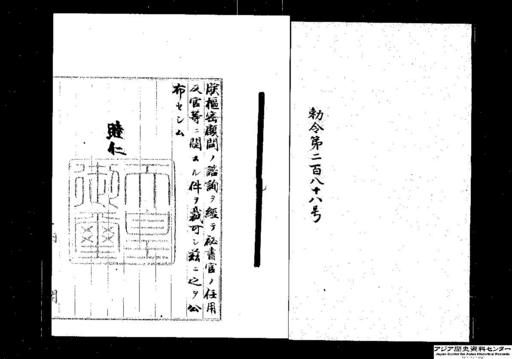 勅令第二百八十八号
朕枢密顧問ノ諮詢ヲ経テ秘書官ノ任用
及官等ニ関スル件ヲ裁可シ茲ニ之ヲ公
布セシム
睦仁
天皇
御璽
アジア歴史資料センター
Japan Center for Asian Historical Records